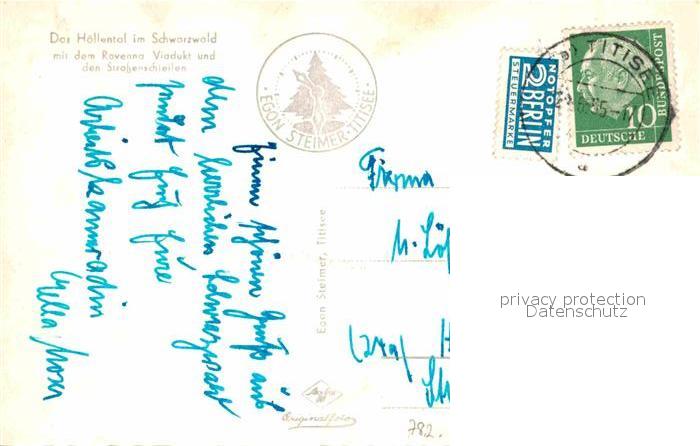 Das Höllental im Schwarzwald
mit dem Ravenna Viadukt und
den Straßenschleifen
EGON STEIMER-TITISEE
NOTOPFER
2 BERLIN
STEUERMARKE
TITISEE
10
DEUTSCHE
BUNDESPOST
Einen schönen Gruß aus
dem herrlichen Schwarzwald
Eure
Arbeitskameradin
Firma
Egon Steimer, Titisee
Originalfoto
782.
privacy protection
Datenschutz